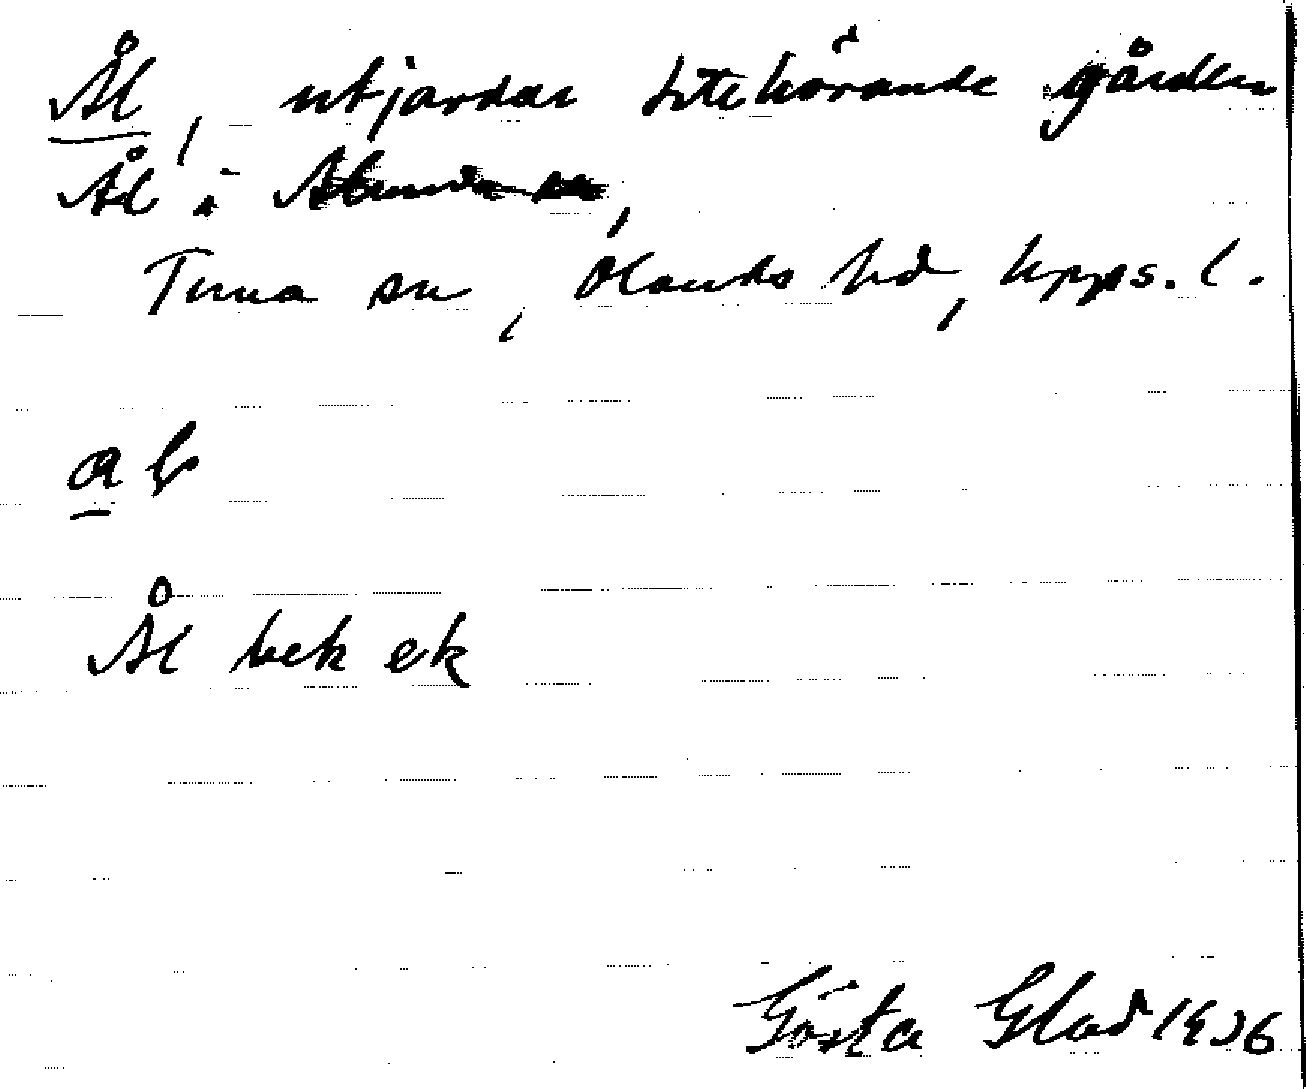 Ål, utjordar tillhörande gården
Ål i Alunda sn,
Tuna sn, Olands hd, Upps. l.
a b
Ål bek ek
Gösta Glad 1936